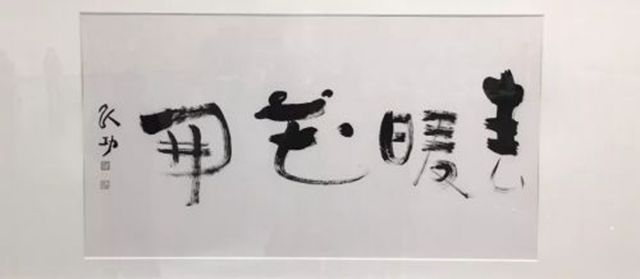 春暖花開
功